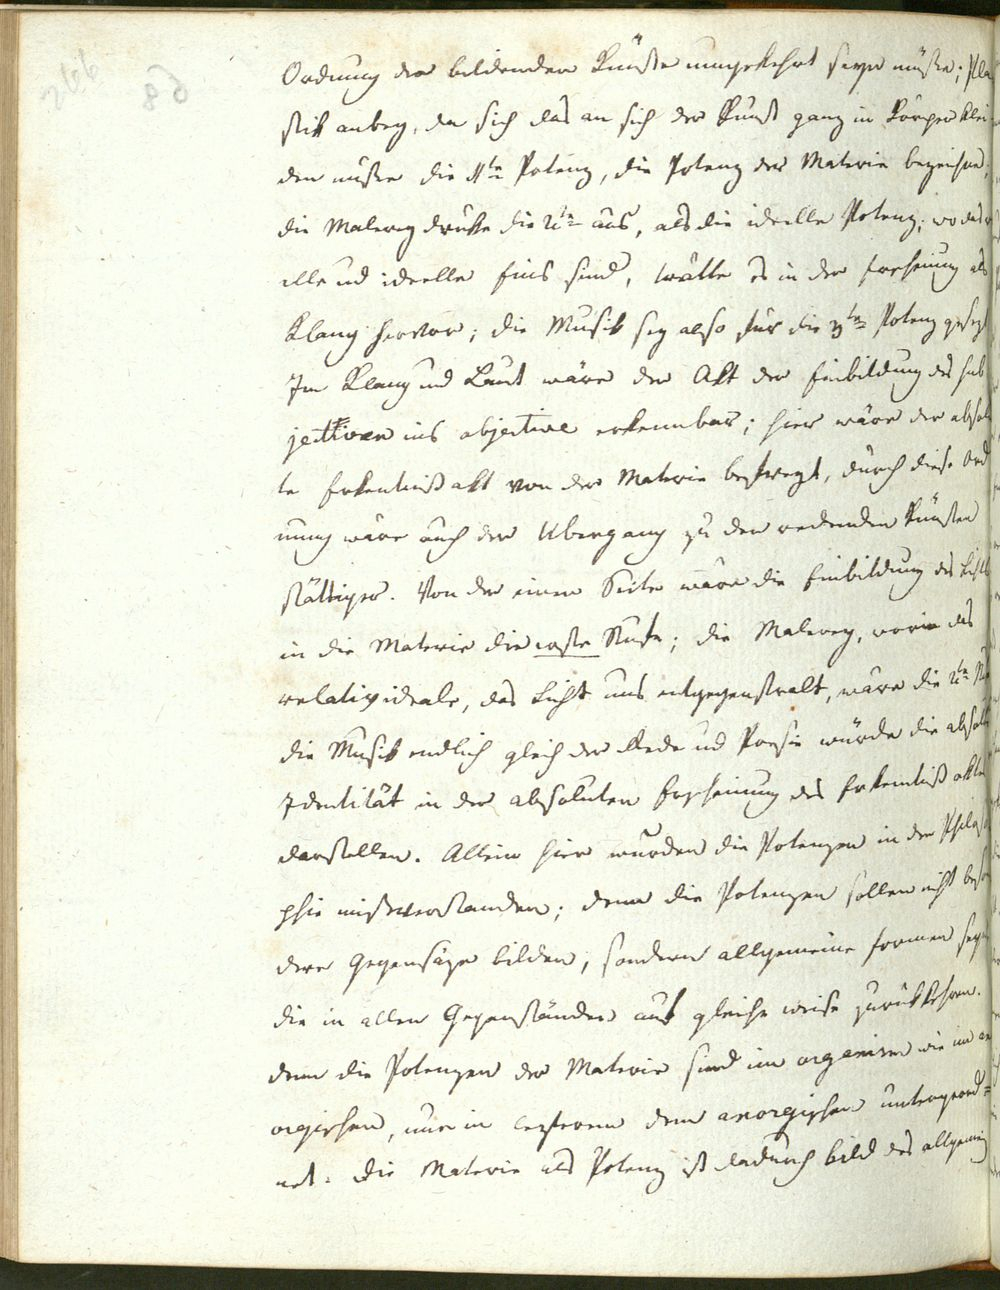 Ordnung der bildenden Künste umgekehrt seyn müßte; Pla
stik anbey, da sich das an sich der Kunst ganz in Körper klei
den müßte die 1te Potenz, die Potenz der Materie bezeichne,
die Malerey drükte die 2te aus, als die ideelle Potenz; wo das re
elle und ideelle Eins sind, trätte es in der Erscheinung als
Klang hervor; die Musik sey also für die 3te Potenz gesezt
Im Klang und Laut wäre der Akt der Einbildung des sub
jectiven ins objective erkennbar; hier wäre der absolu
te Erkentnißakt von der Materie bewegt, durch diese Ord
nung wäre auch der Übergang zu den redenden Künsten
stättiger. Von der einen Seite wäre die Einbildung des Lichts
in die Materie die erste Stufe; die Malerey, worin das
relativideale, das Licht uns entgegenstralt, wäre die 2te
die Musik endlich gleich der Rede und Poesie würde die absolute
Identität in der absoluten Erscheinung des Erkentnißaktes
darstellen. Allein hier wurden die Potenzen in der Philoso
phie mißverstanden; denn die Potenzen sollen nicht beson
dere Gegensäze bilden, sondern allgemeine Formen seyn
die in allen Gegenständen auf gleiche weise zurükkehren.
denn die Potenzen der Materie sind im organism wie im an
orgischen, nur in lezterem dem anorgischen untergeord=
net. die Materie als Potenz ist dadurch bild des allgemein